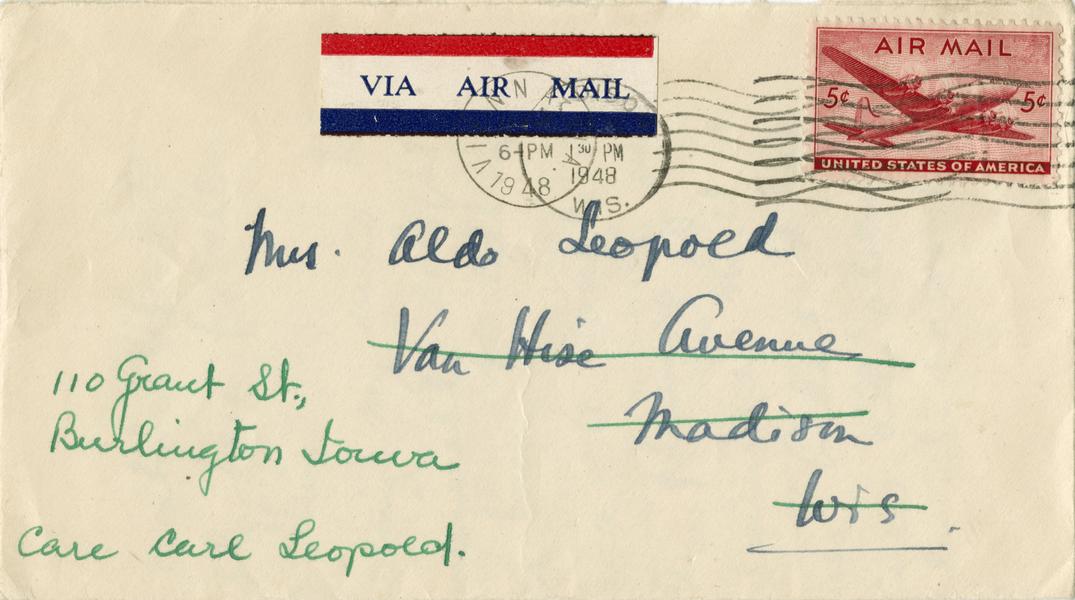 AIR MAIL
VIA AIR MAIL
5¢ 5¢
UNITED STATES OF AMERICA
6-PM 1 30 PM
1948 1948
WIS.
Mrs. Aldo Leopold
Van Hise Avenue
Madison
Wis.
110 Grant St.,
Burlington Iowa
Care Carl Leopold.